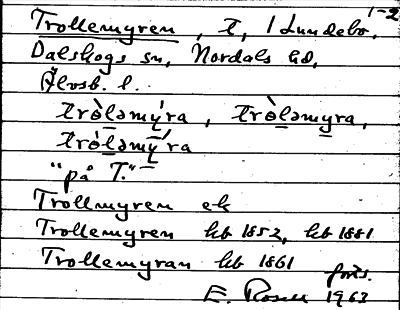 1-2
Trollemyren, t, 1 Lundebo,
Dalskogs sn, Nordals hd,
Älvsb. l.
tròləmy̆́ra, tròləmyra,
tròləmý̆ra
"på T."
Trollmyren ek
Trollemyren hb 1852, hb 1881
Trollemyran hb 1861
forts.
E. Rosell 1963